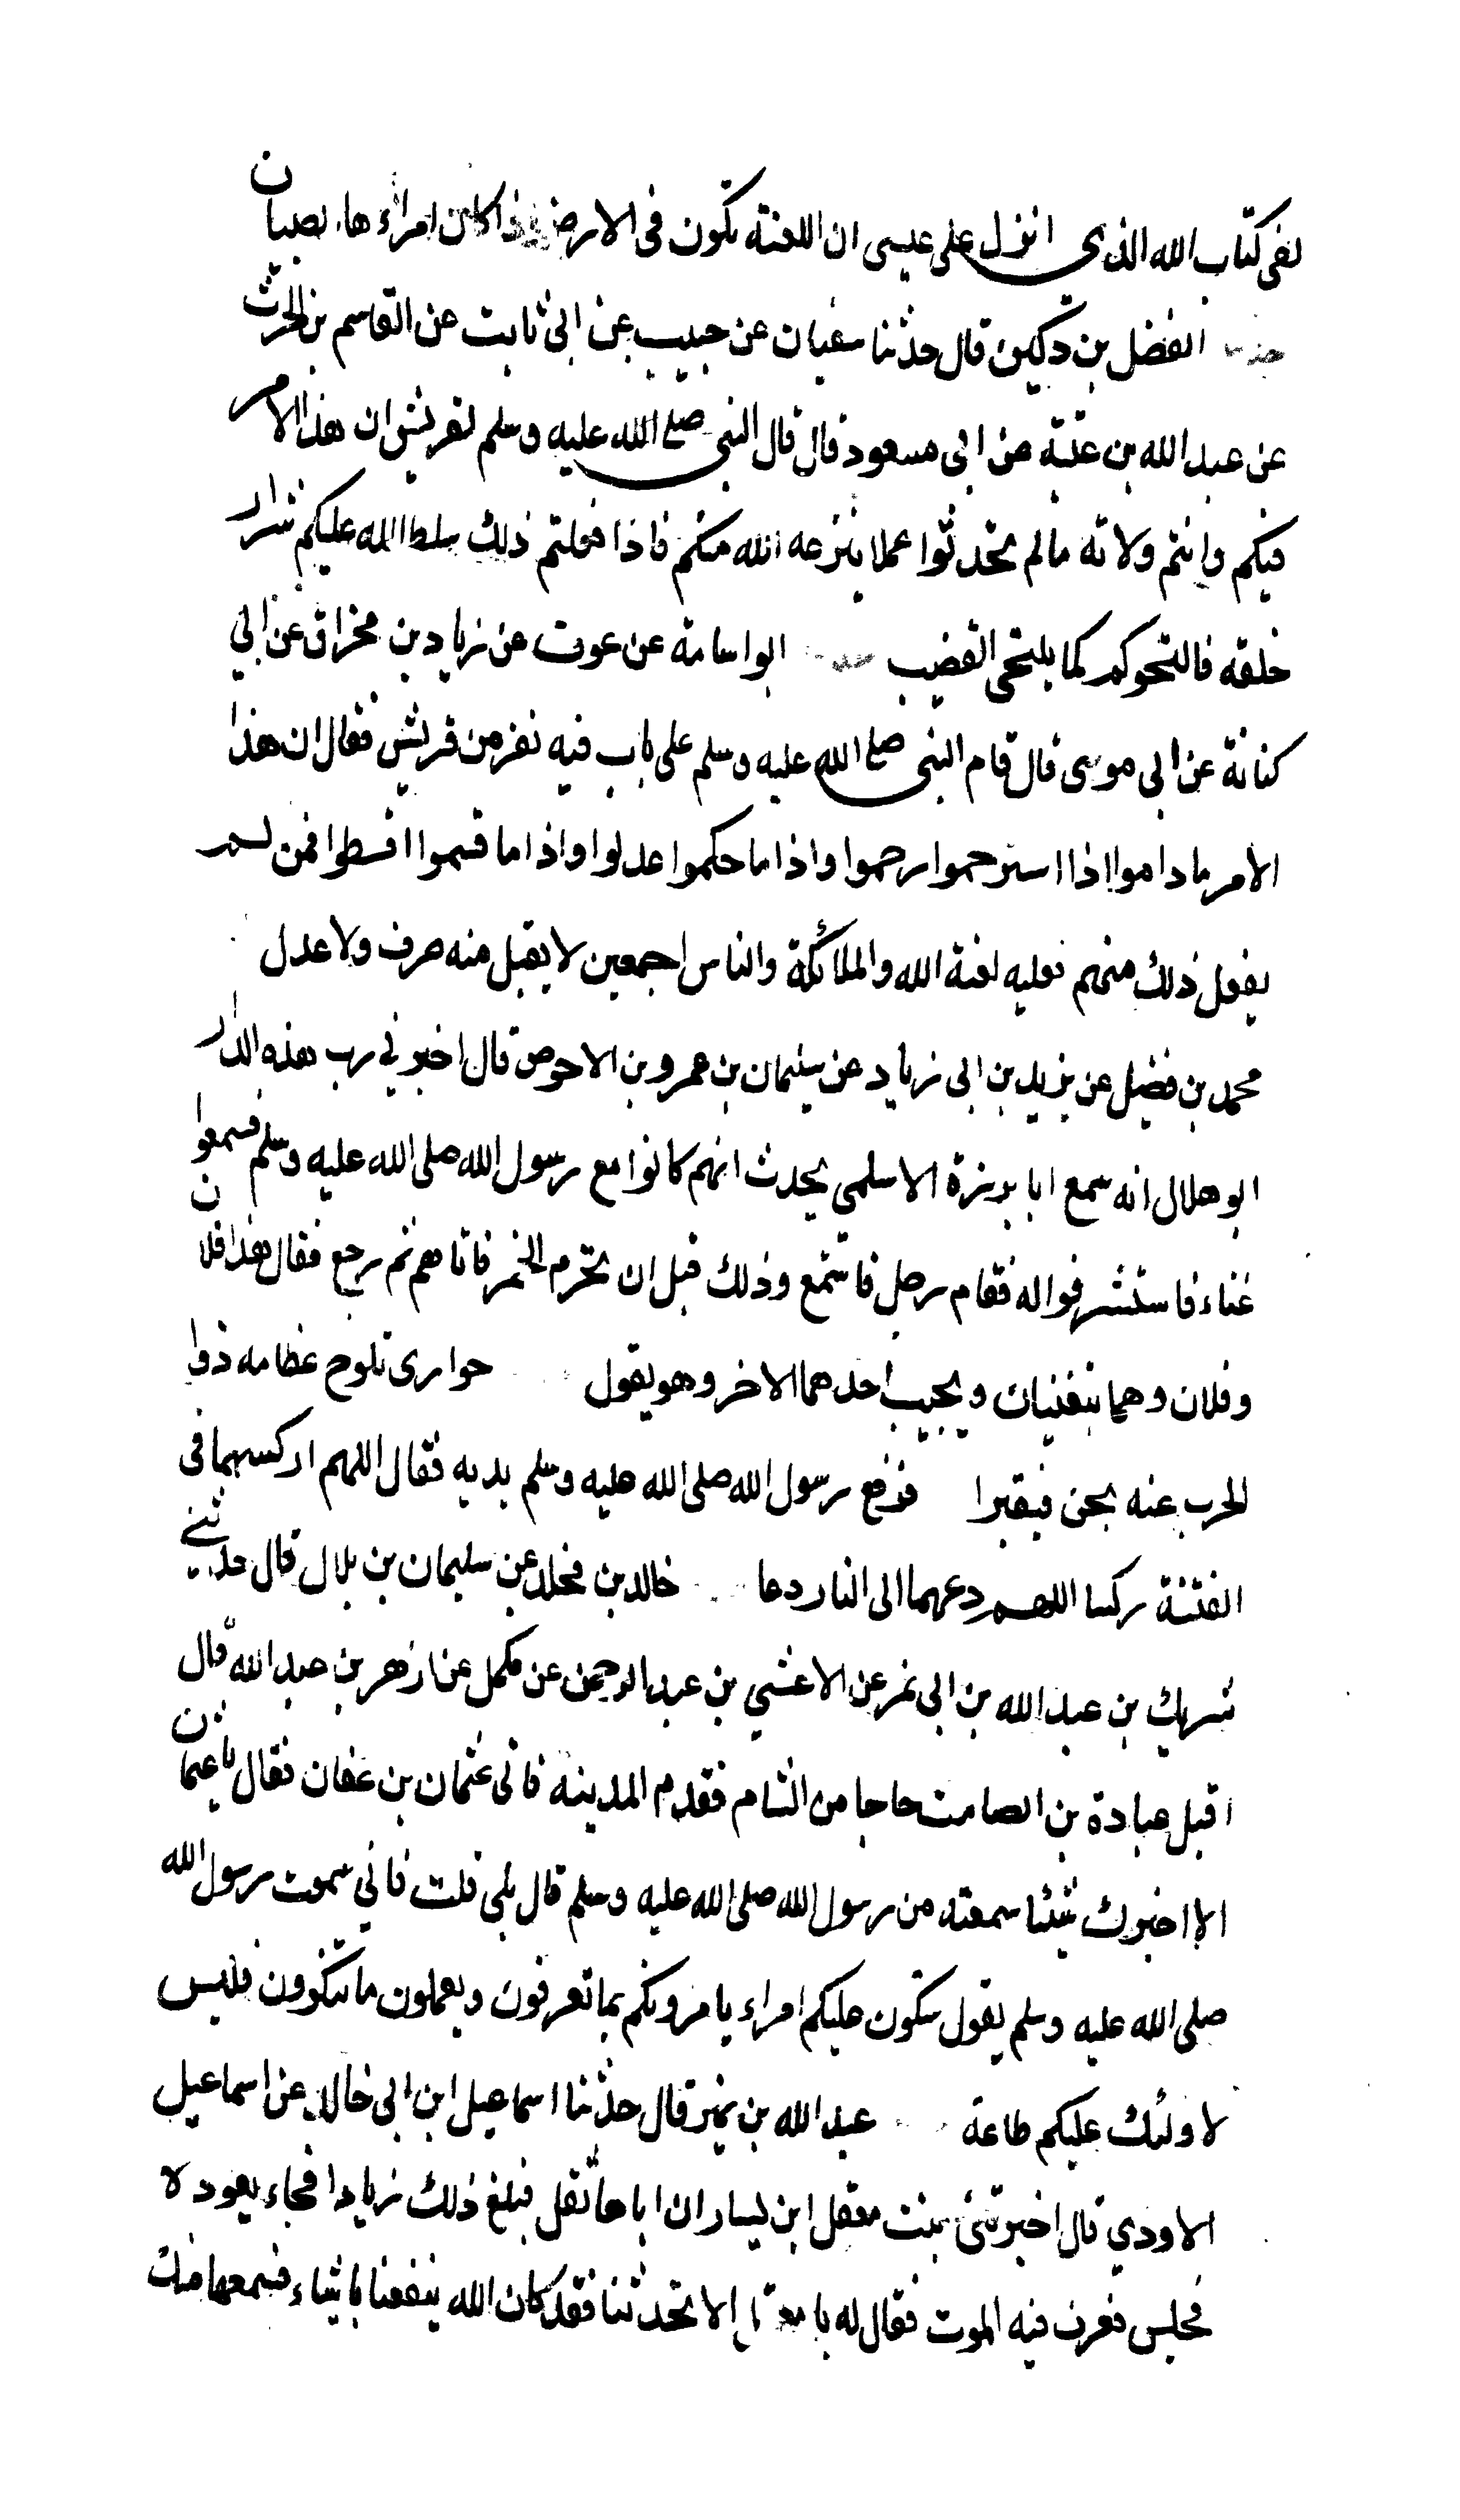 لفى كتاب الله الذى انزل على عيسى ان اللعنة تكون فى الارض اذا كان امراءها الصبيان
حدثنا الفضل بن دكين قال حدثنا سفيان عن حبيب عن ابى ثابت عن القاسم بن الحرث
عن عبد الله بن عتبة عن ابى مسعود قال قال النبى صلى الله عليه وسلم لقريش ان هذا الامر
فيكم وانتم ولاته مالم تحدثوا عملا ينزعه الله منكم فاذا فعلتم ذلك سلط الله عليكم شرار
خلقه فالتحوكم كما يلتحى القضيب حدثنا ابو اسامة عن عوف عن زياد بن مخراق عن ابي
كنانة عن ابى موسى قال قام النبى صلى الله عليه وسلم على باب فيه نفر من قريش فقال ان هذا
الامر ما داموا اذا استرحموا رحموا واذا ما حكموا عدلوا واذا ما قسموا اقسطوا فمن لم
يفعل ذلك منهم فعليه لعنة الله والملائكة والناس اجمعين لا يقبل منه صرف ولا عدل
محمد بن فضيل عن يزيد بن ابى زياد عن سليمان بن عمرو بن الاحوص قال اخبرني رب هذه الدار
ابو هلال انه سمع ابا برزة الاسلمى يحدث انهم كانوا مع رسول الله صلى الله عليه وسلم فسمعوا
غناء فاستشرفوا له فقام رجل فاستمع وذلك قبل ان تحرم الخمر فاتاهم ثم رجع فقال هذا فلان
وفلان وهما يتغنيان ويجيب احدهما الاخر وهو يقول حوارى تلوح عظامه ذوا
الحرب عنه يجن فيقبرا فرفع رسول الله صلى الله عليه وسلم يديه فقال اللهم اركسهما فى
الفتنة ركسا اللهم دعهما الى النار دعا خالد بن مخلد عن سليمان بن بلال قال حدثني
شريك بن عبد الله بن ابى نمر عن الاعشي بن عبد الرحمن عن مكمل عن ازهر بن عبد الله قال
اقبل عبادة بن الصامت حاجا من الشام فقدم المدينة فاتى عثمان بن عفان فقال يا عثمان
الا اخبرك شيئا سمعته من رسول الله صلى الله عليه وسلم قال بلى قلت فاني سمعت رسول الله
صلى الله عليه وسلم يقول ستكون عليكم امراء يامرونكم بما تعرفون ويعملون ما تنكرون فليس
لاولئك عليكم طاعة عبد الله بن نمير قال حدثنا اسماعيل ابن ابى خالد عن اسماعيل
الاودي قال اخبرتنى بنت معقل ابن يسار ان اباها ثقل فبلغ ذلك زيادا فجاء يعوده
فجلس فعرف فيه الموت فقال له يا معقل الا تحدثنا فقد كان الله ينفعنا باشياء سمعناها منك